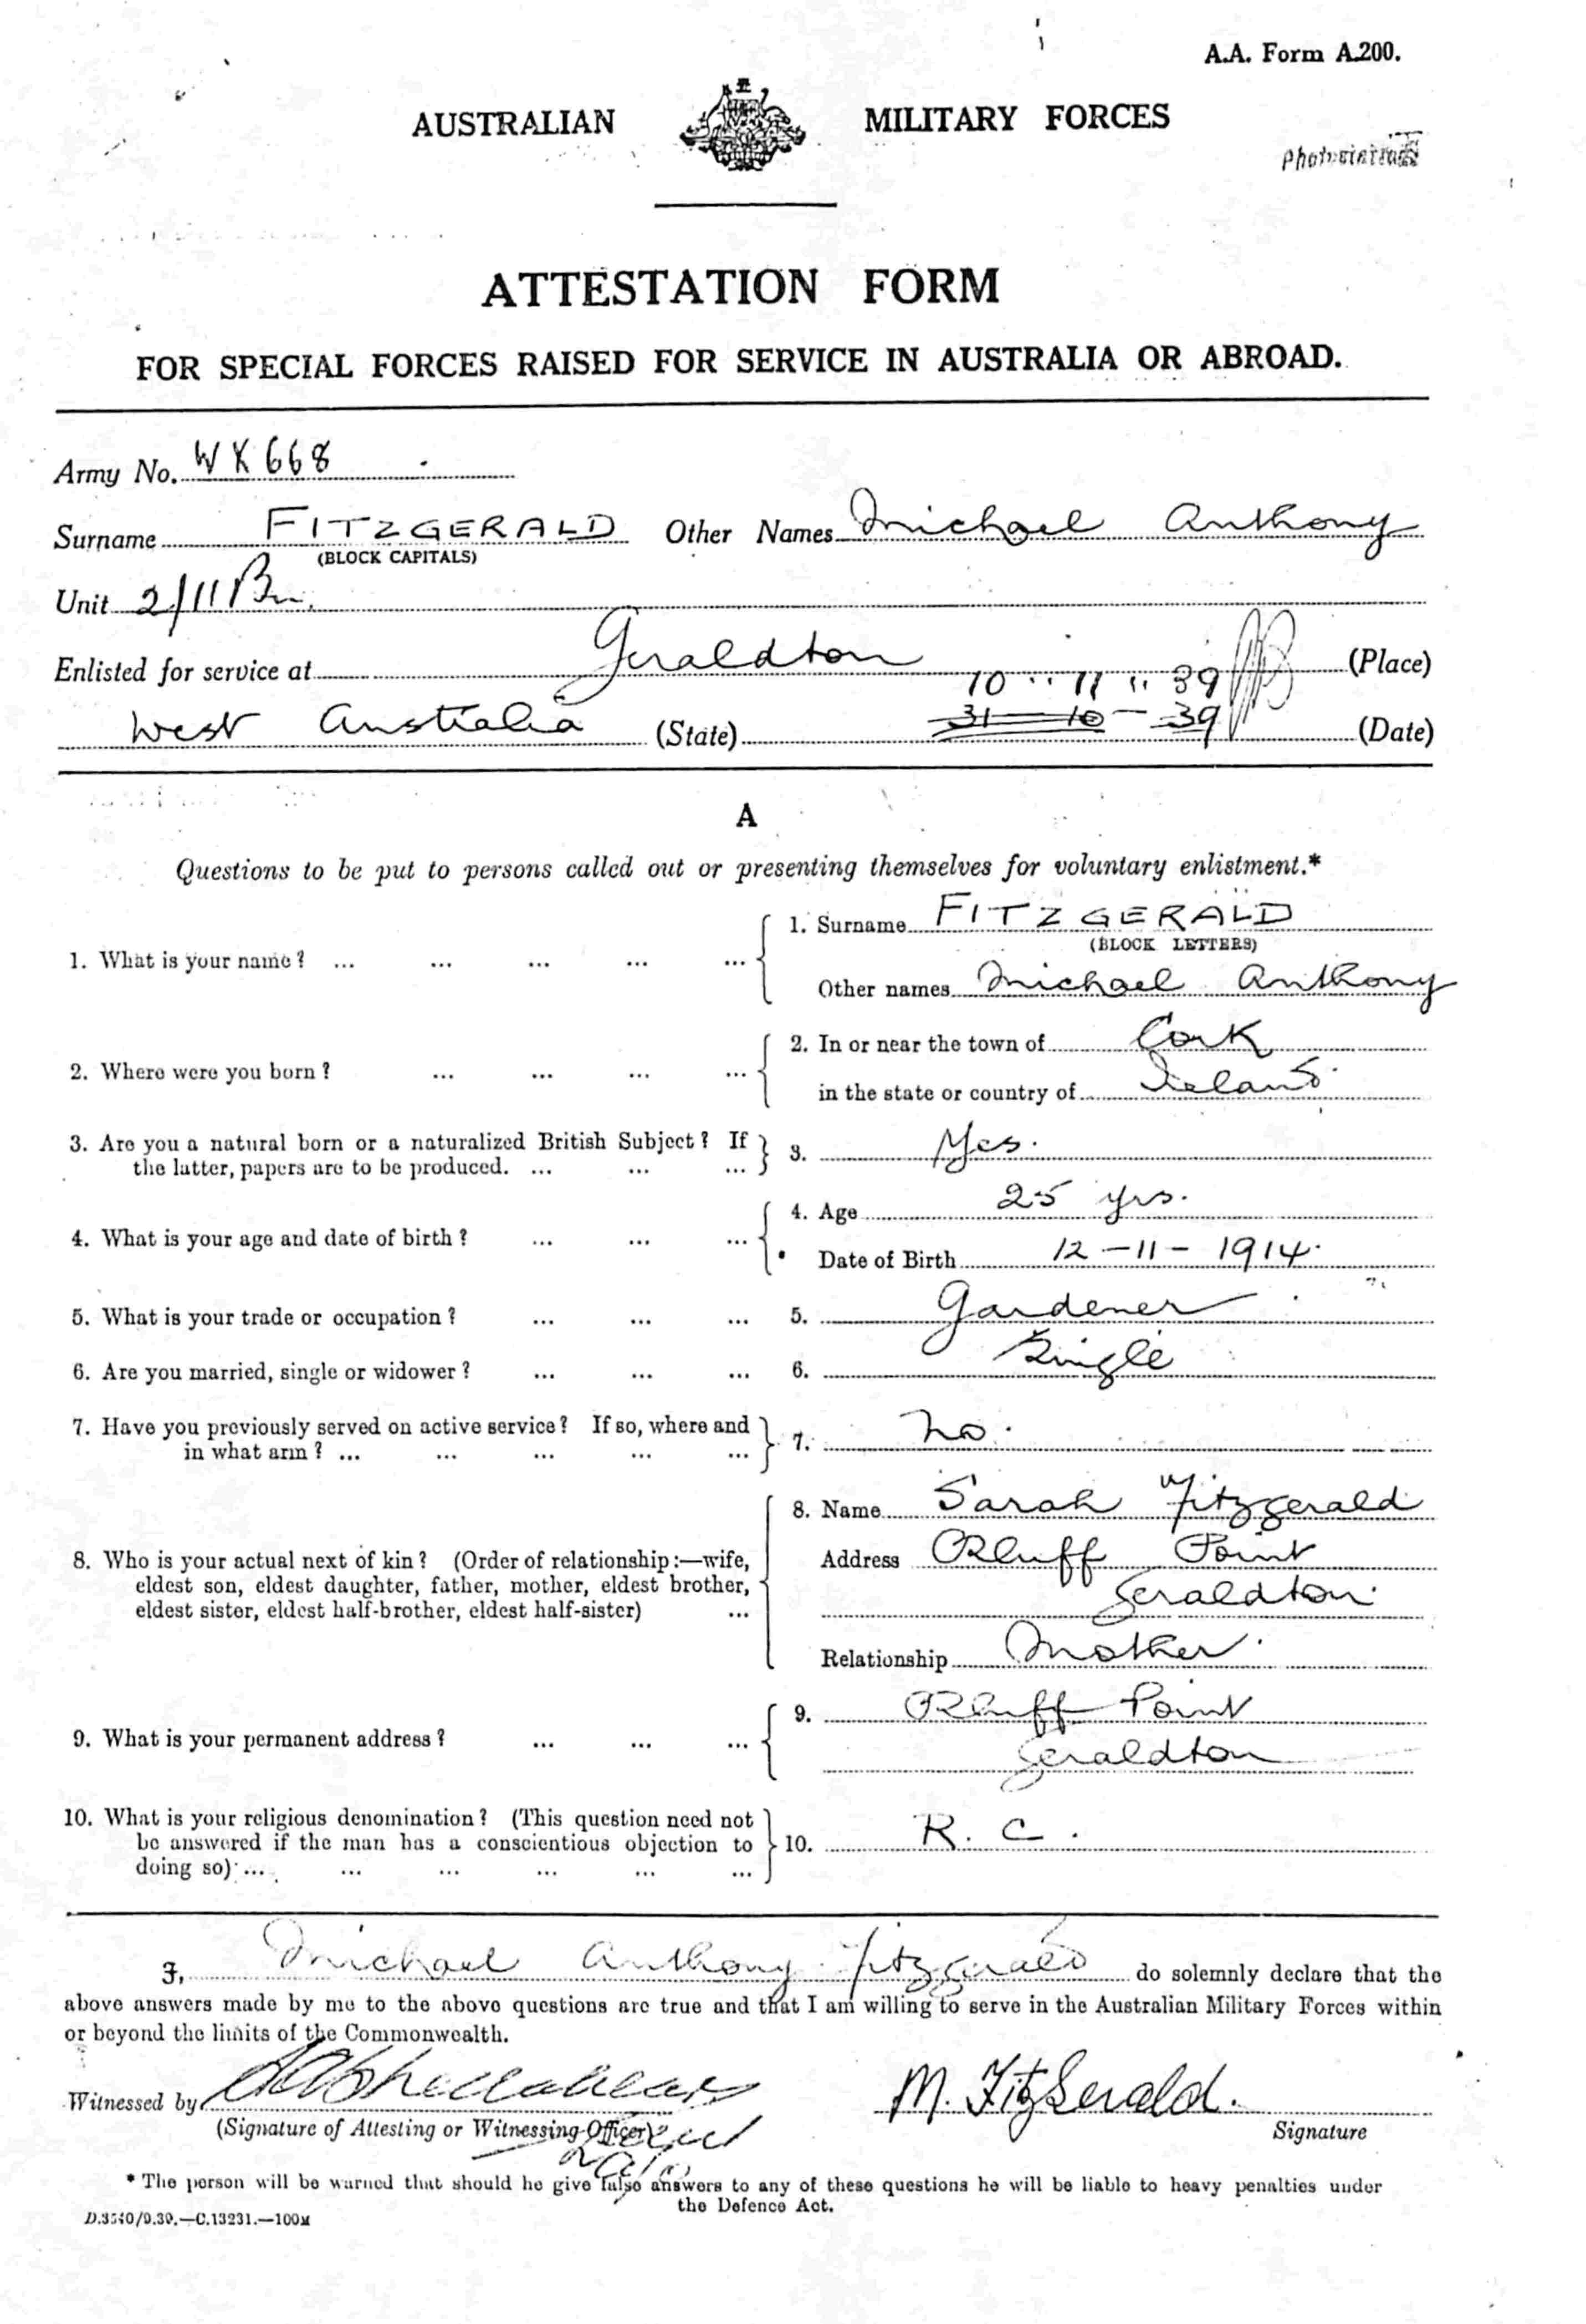 A.A. Form A.200.
AUSTRALIAN MILITARY FORCES
ATTESTATION FORM
FOR SPECIAL FORCES RAISED FOR SERVICE IN AUSTRALIA OR ABROAD.
Army No. WX668
Surname FITZGERALD Other Names Michael Anthony
(BLOCK CAPITALS)
Unit 2/11 Bn.
Enlisted for service at Geraldton (Place)
10 " 11 " 39
West Australia (State) 31-10-39 (Date)
A
Questions to be put to persons called out or presenting themselves for voluntary enlistment.*
1. What is your name? ... ... ... ... ... 1. Surname FITZGERALD
(BLOCK LETTERS)
Other names Michael Anthony
2. Where were you born? ... ... ... ... 2. In or near the town of Cork
in the state or country of Ireland
3. Are you a natural born or a naturalized British Subject? If the latter, papers are to be produced. ... ... ... 3. Yes.
4. What is your age and date of birth? ... ... ... 4. Age 25 yrs.
Date of Birth 12-11-1914.
5. What is your trade or occupation? ... ... ... 5. Gardener
6. Are you married, single or widower? ... ... ... 6. Single
7. Have you previously served on active service? If so, where and in what arm? ... ... ... ... ... 7. No.
8. Who is your actual next of kin? (Order of relationship:—wife, eldest son, eldest daughter, father, mother, eldest brother, eldest sister, eldest half-brother, eldest half-sister) ... 8. Name Sarah Fitzgerald
Address Bluff Point
Geraldton.
Relationship Mother.
9. What is your permanent address? ... ... ... 9. Bluff Point
Geraldton
10. What is your religious denomination? (This question need not be answered if the man has a conscientious objection to doing so) ... ... ... ... ... ... 10. R. C.
I, Michael Anthony Fitzgerald do solemnly declare that the
above answers made by me to the above questions are true and that I am willing to serve in the Australian Military Forces within
or beyond the limits of the Commonwealth.
Witnessed by M. FitzGerald.
(Signature of Attesting or Witnessing Officer) Signature
* The person will be warned that should he give false answers to any of these questions he will be liable to heavy penalties under
the Defence Act.
D.3540/9.39.—C.13231.—100M